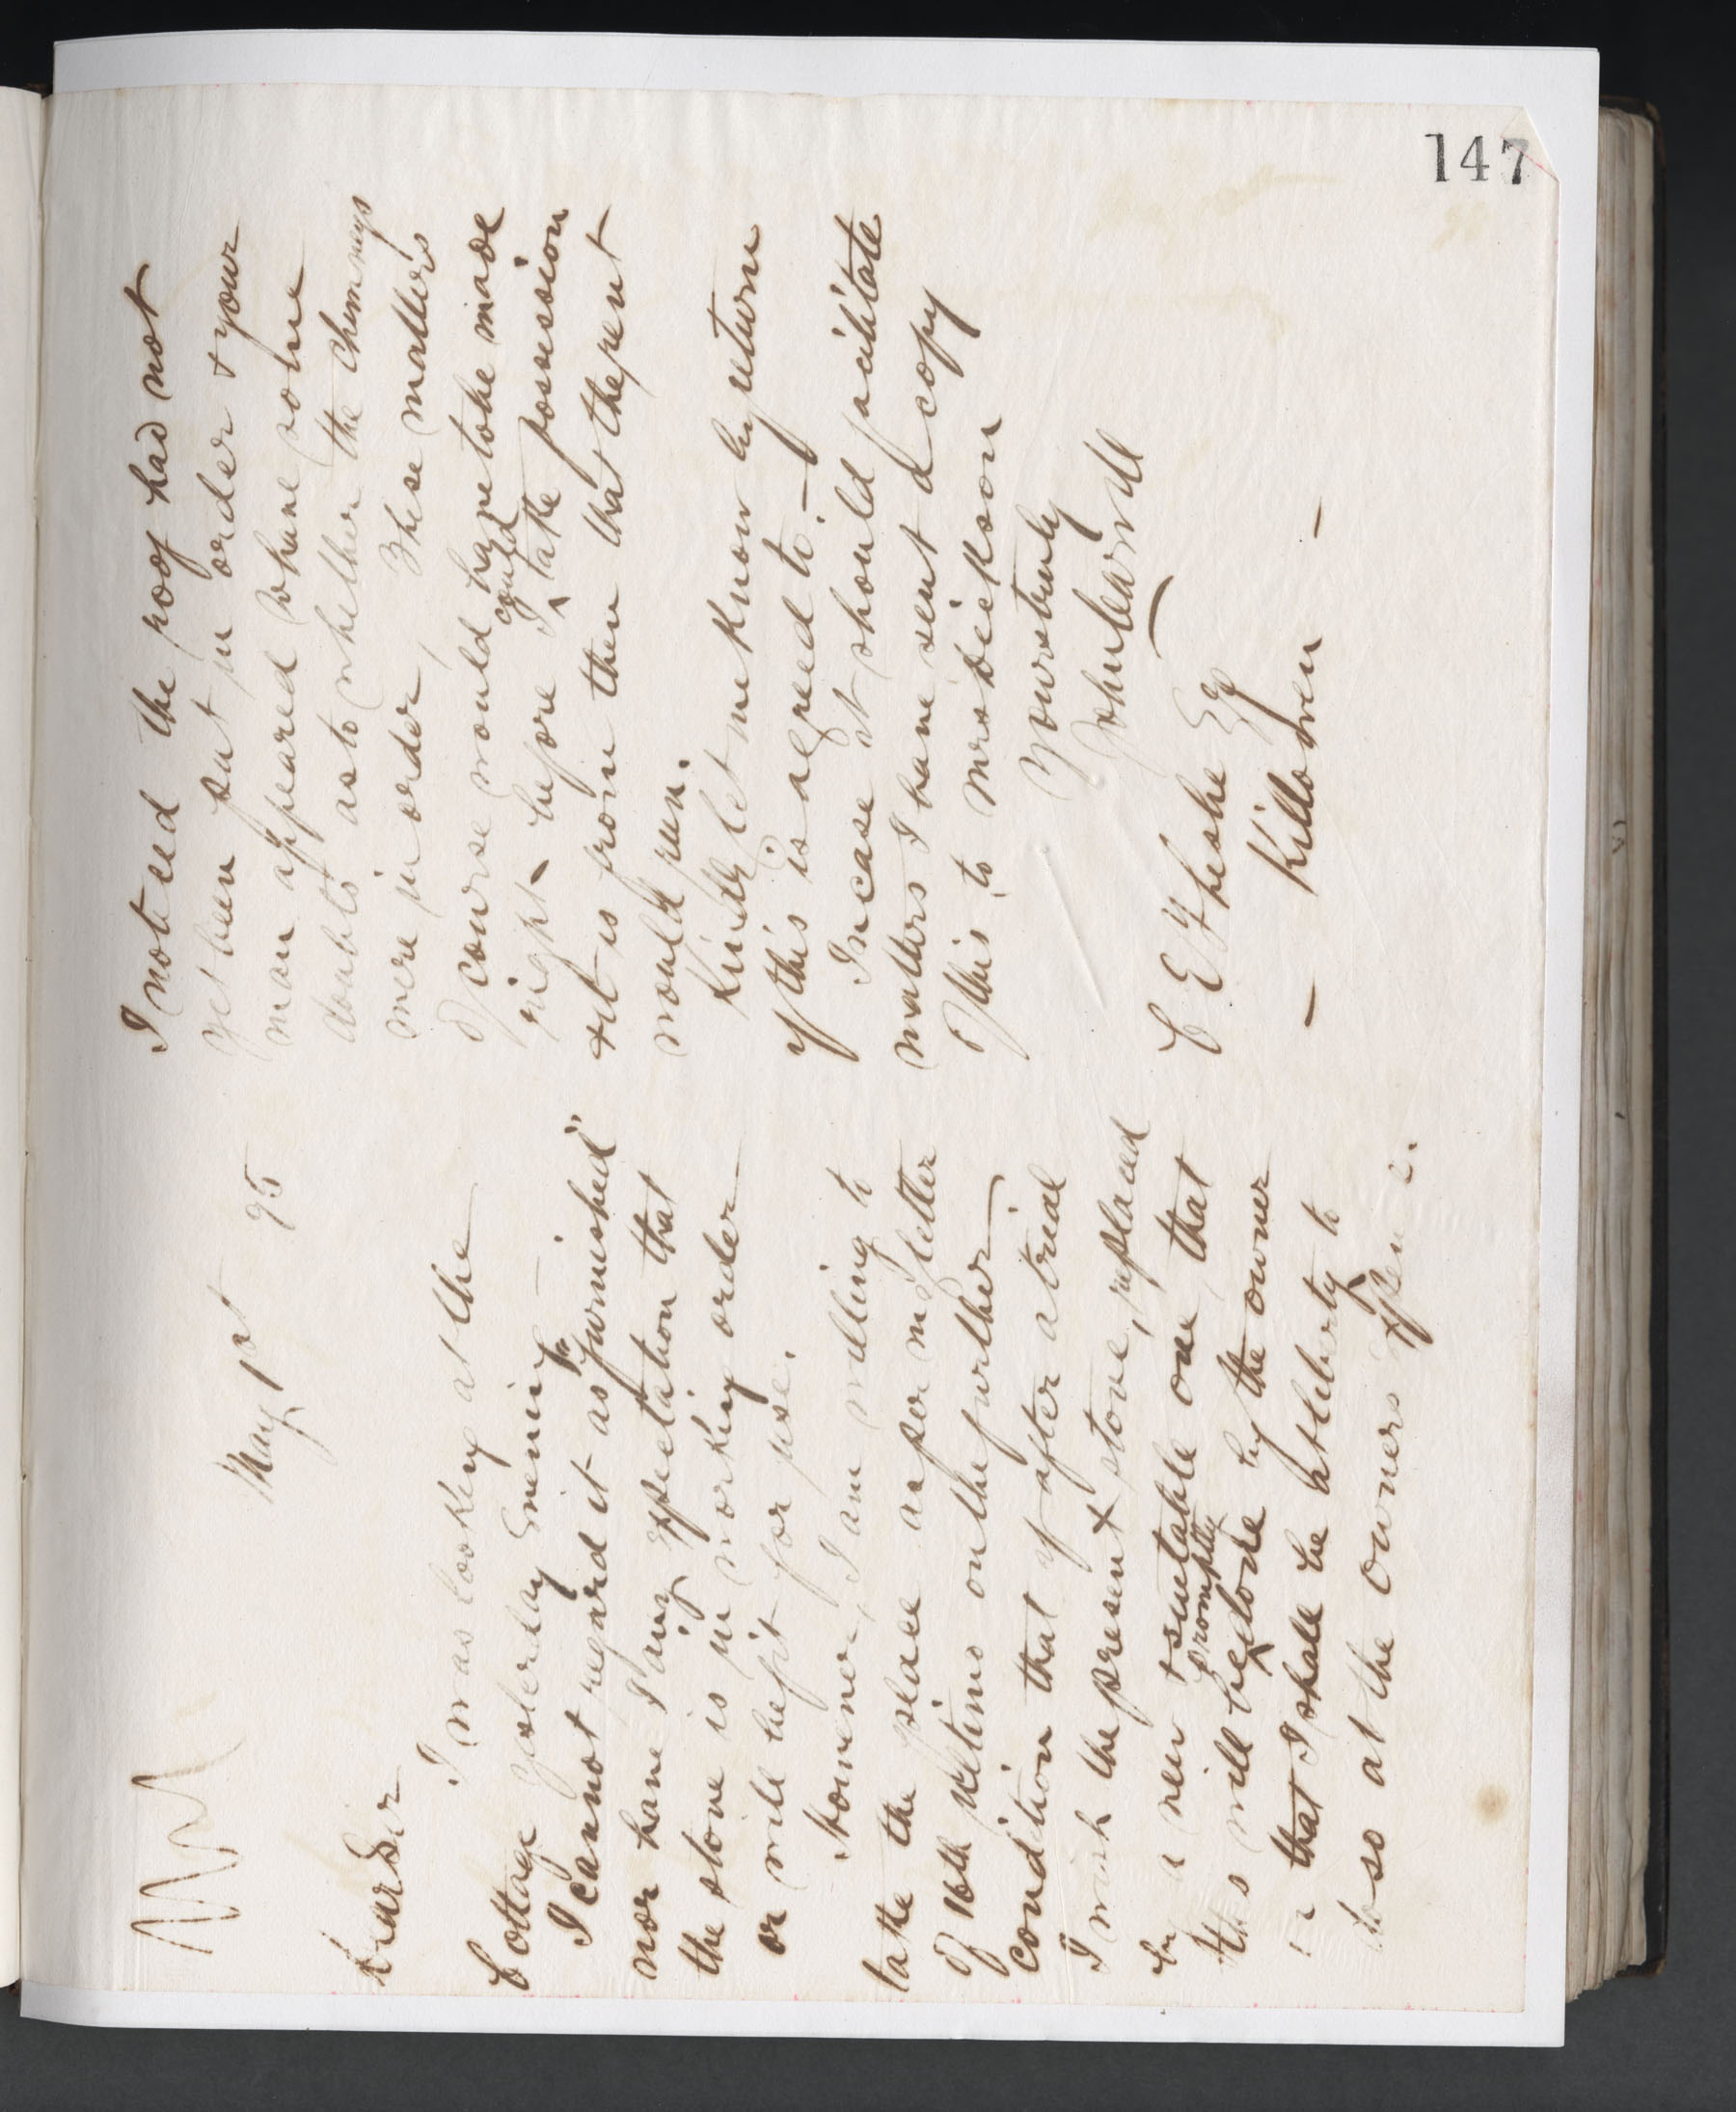 147
May 1st 95
Dear Sir
I was looking at the
Cottage yesterday Evening —
I cannot regard it as "furnished"
nor have I any expectation that
the stove is in working order
or will be fit for use.
However, I am willing to
take the place as per my letter
of 16th ultimo on the further
condition that if after a trial
I wish the present stove, replaced
by a new & suitable one, that
this will be promptly done by the owner
or that I shall be at liberty to
do so at the owners expense.
I noticed the roof had not
yet been put in order & your
man appeared to have some
doubts as to whether the chimneys
were in order, These matters
of course would have to be made
right before I could take possession
& it is from then that the rent
would run.
Kindly let me know by return
if this is agreed to. —
In case it should facilitate
matters I have sent a copy
of this to Mrs Dickson
Yours truly
John
C E
Esq
— —